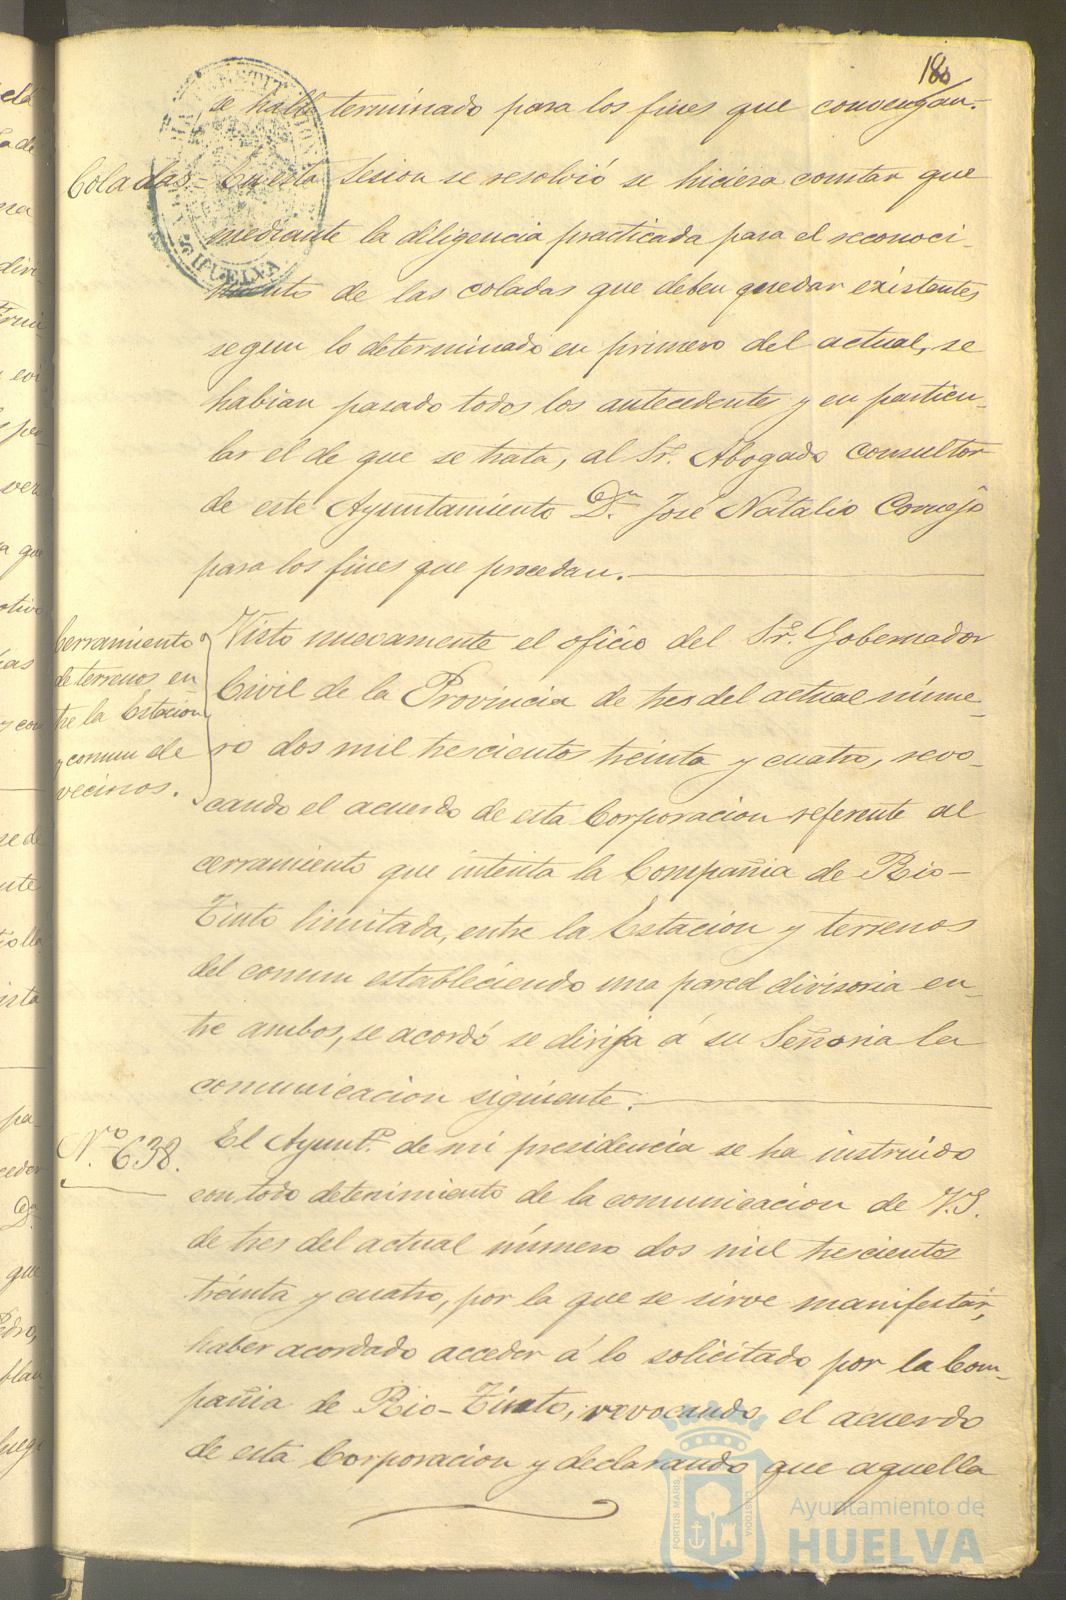 180
se halle terminado para los fines que convengan.
Coladas = En esta sesion se resolvió se hiciera constar que
mediante la diligencia practicada para el reconoci-
miento de las coladas que deben quedar existentes
segun lo determinado en primero del actual, se
habian pasado todos los antecedentes y en particu-
lar el de que se trata, al Sr. Abogado consultor
de este Ayuntamiento Dn. José Natalio Cornejo
para los fines que procedan.
Cerramiento
de terrenos en
tre la Estacion
y comun de
vecinos.
Visto nuevamente el oficio del Sr. Gobernador
Civil de la Provincia de tres del actual núme-
ro dos mil trescientos treinta y cuatro, revo-
cando el acuerdo de esta Corporacion referente al
cerramiento que intenta la Compañia de Rio-
Tinto limitada, entre la Estacion y terrenos
del comun estableciendo una pared divisoria en-
tre ambos, se acordó se dirija á su Señoria la
comunicacion siguiente.
Nº 638.
El Ayunto. de mi presidencia se ha instruido
con todo detenimiento de la comunicacion de V.S.
de tres del actual número dos mil trescientos
treinta y cuatro, por la que se sirve manifestar,
haber acordado acceder á lo solicitado por la Com-
pañia de Rio-Tinto, revocando el acuerdo
de esta Corporacion y declarando que aquella
PORTUS MARIS CUSTODIA
Ayuntamiento de
HUELVA